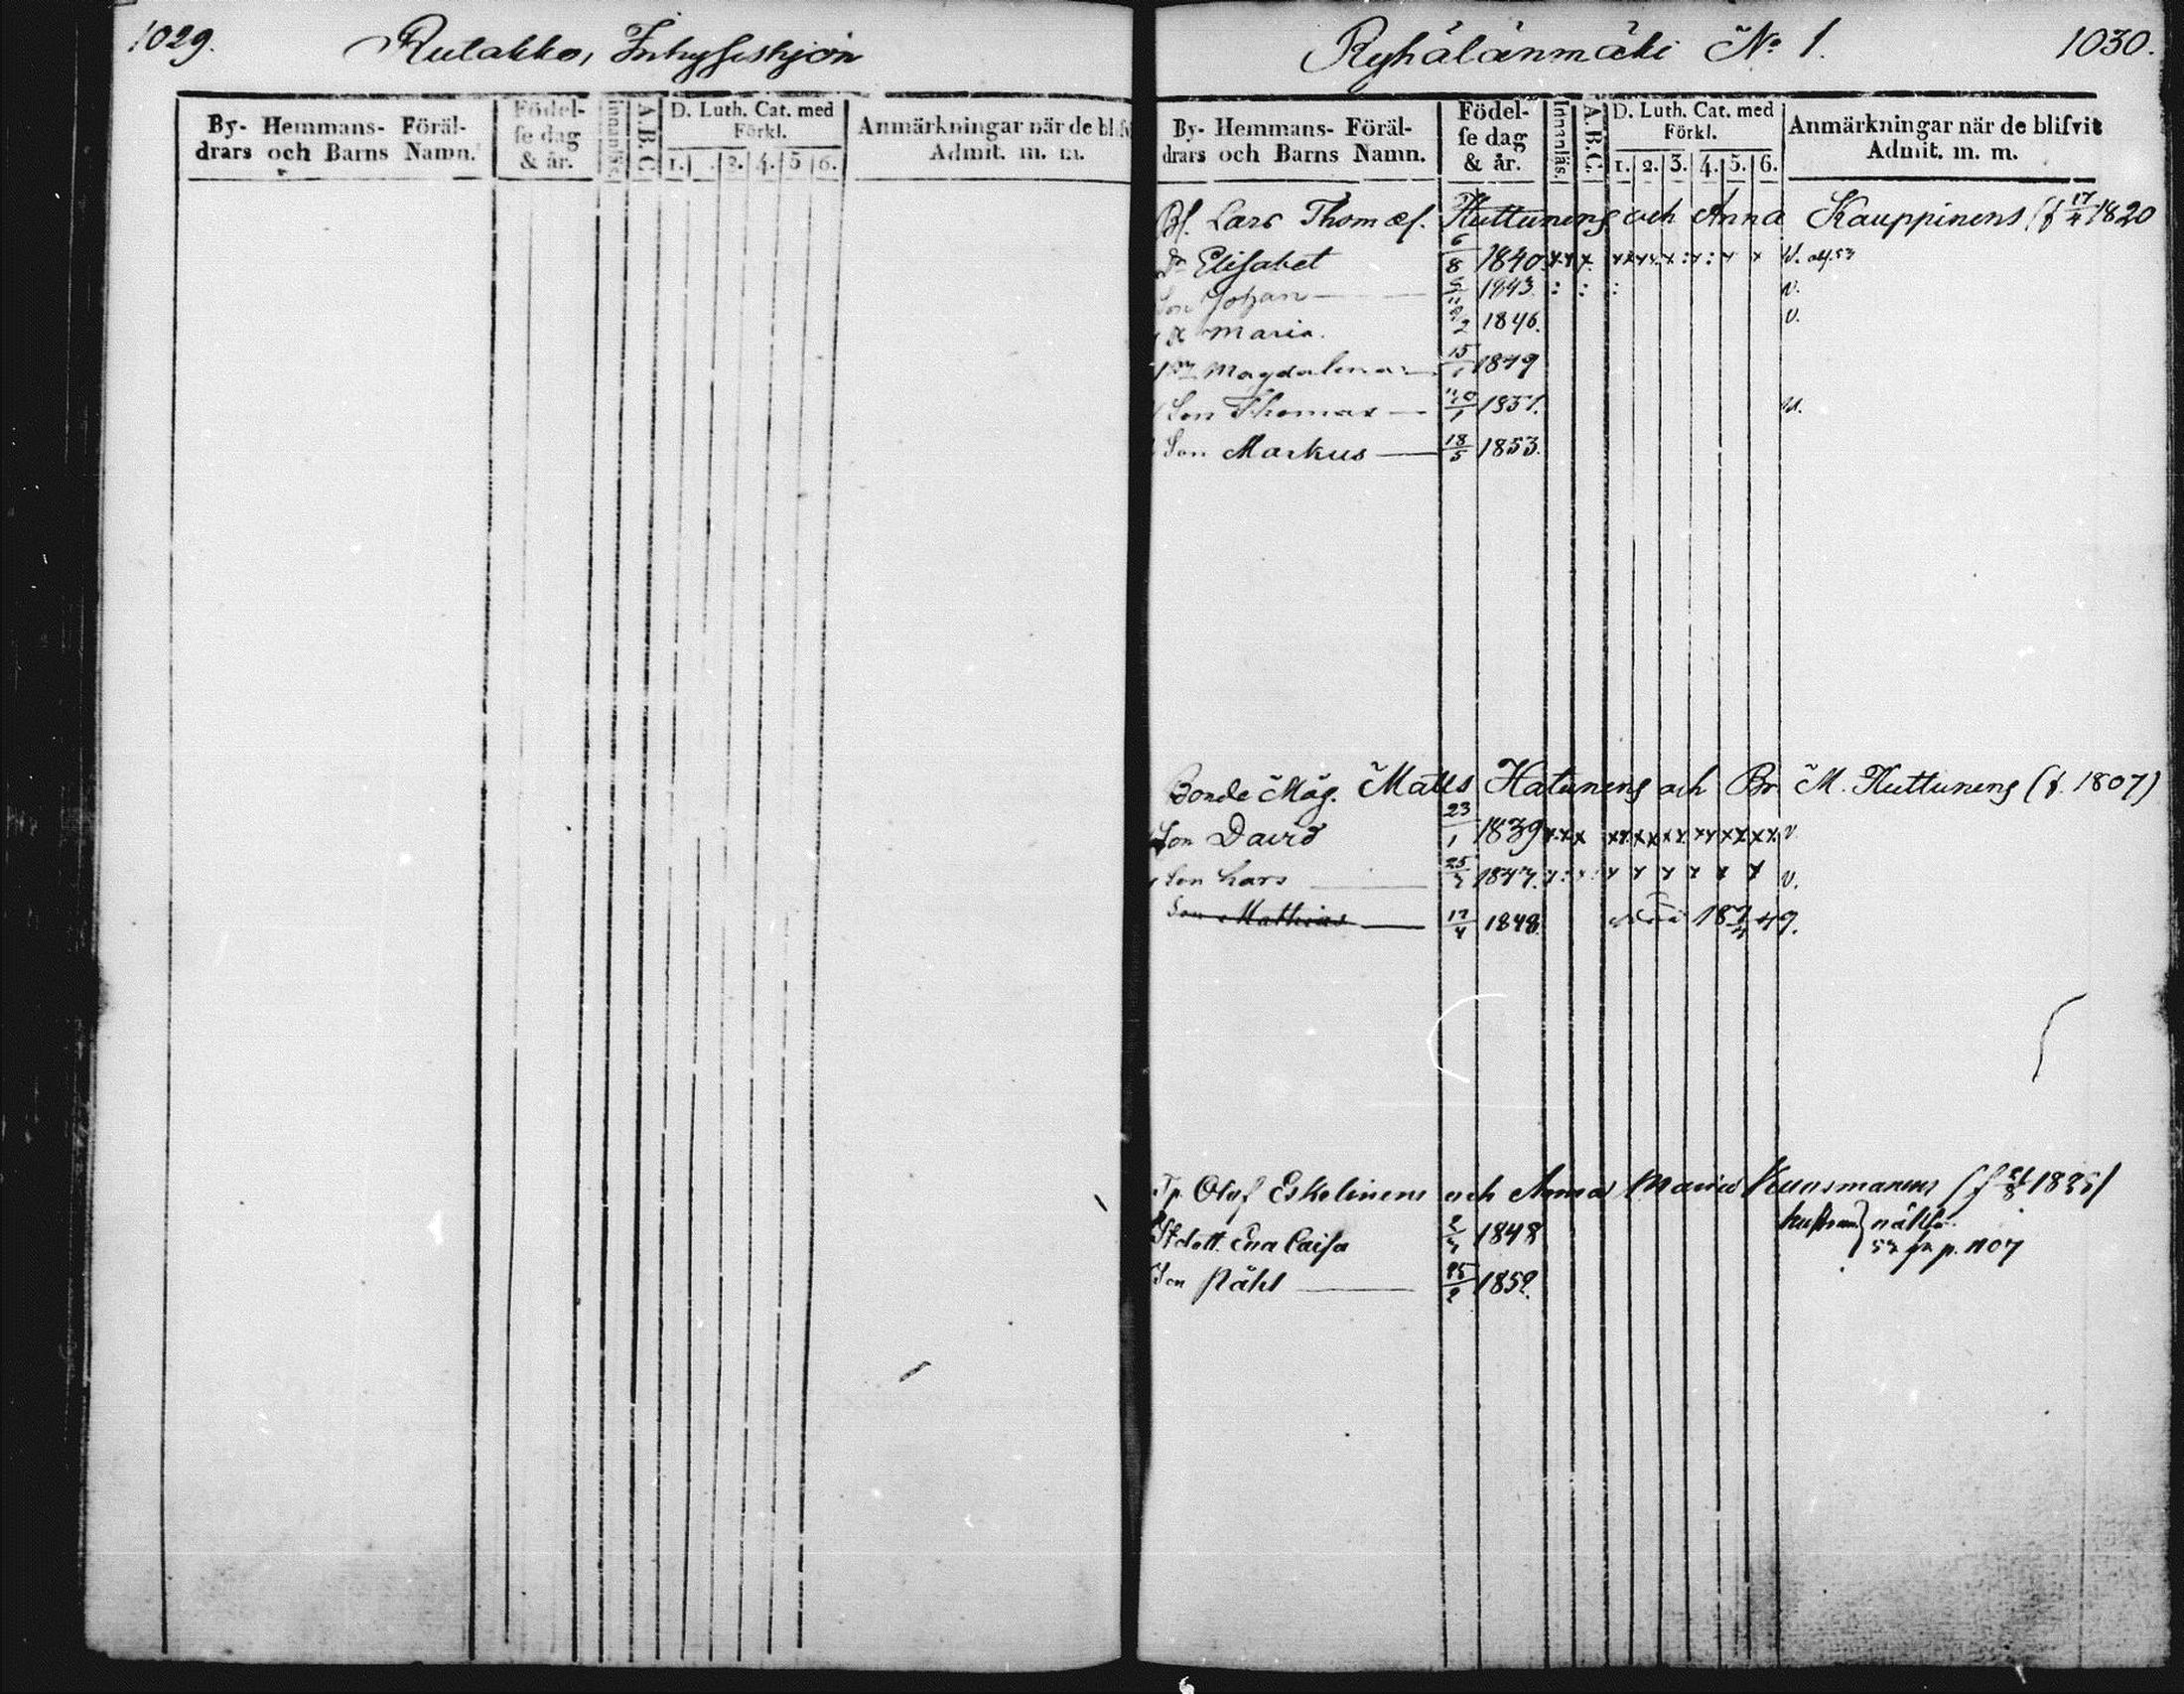 1029.
Rutakko, Inhyseshjon
By- Hemmans- Föräl-
drars och Barns Namn.
Födel-
se dag
& år.
Innanläs.
A.B.C
D. Luth. Cat. med
Förkl.
1. 2. 4. 5 6.
Anmärkningar när de blifv
Admit. m. m.
Ryhälänmäki No 1.
1030.
By- Hemmans- Föräl-
drars och Barns Namn.
Födel-
se dag
& år.
Innanläs.
A.B.C.
D. Luth. Cat. med
Förkl.
1. 2. 3. 4. 5. 6.
Anmärkningar när de blifvit
Admit. m. m.
Lars Thomæs. Huttunens och Anna Kauppinens (f 17/4 1820
Dr Elisabet 6/8 1840
Son Johan 1843
Maria. 1846.
Magdalena 15/1 1849
Son Thomas 1851.
Son Markus 18/5 1853.
Bonde Måg. Matts Hatunens och Br M. Huttunens (f. 1807)
Son David 23/1 1839 v
Son Lars 1844. v.
Son Mathias 17/4 1848. 49.
Olof Eskelinens och Anna Maria Kuosmanens 1835
Stdott. Eva Caisa 1848
53 p. 1107
Son Påhl 25/2 1852.